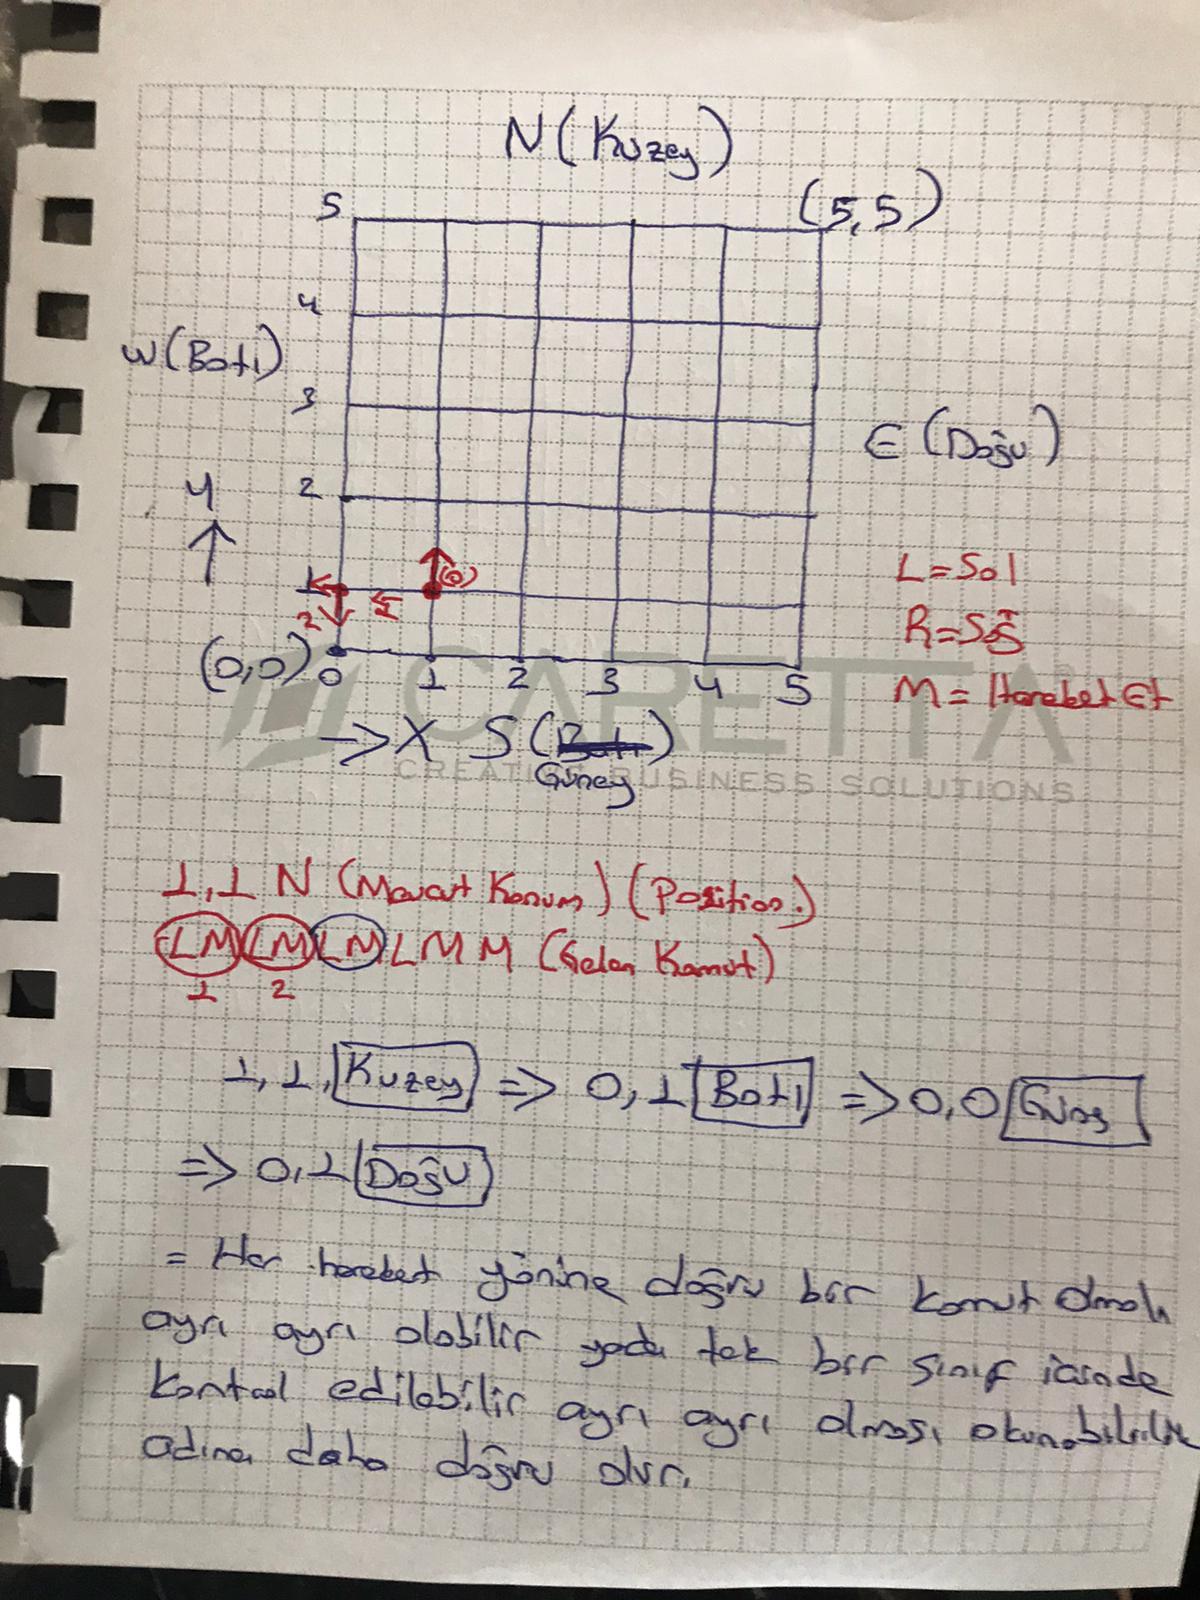 N (Kuzey)
5
(5,5)
4
W (Batı)
3
E (Doğu)
y
2
1
(0)
L = Sol
1
2
R = Sağ
(0,0) 0 1 2 3 4 5
M = Hareket Et
→ X S (Batı)
Güney
CARETTA
CREATIVE BUSINESS SOLUTIONS
1,1 N (Mevcut Konum) (Position.)
LM LM LM LMM (Gelen Komut)
1 2
1, 1, Kuzey => 0, 1 Batı => 0,0 Güney
=> 0,1 Doğu
= Her hareket yönine doğru bir komut olmalı
ayrı ayrı olabilir yada tek bir sınıf icinde
kontrol edilebilir ayrı ayrı olması okunabilirlik
adına daha doğru olur.